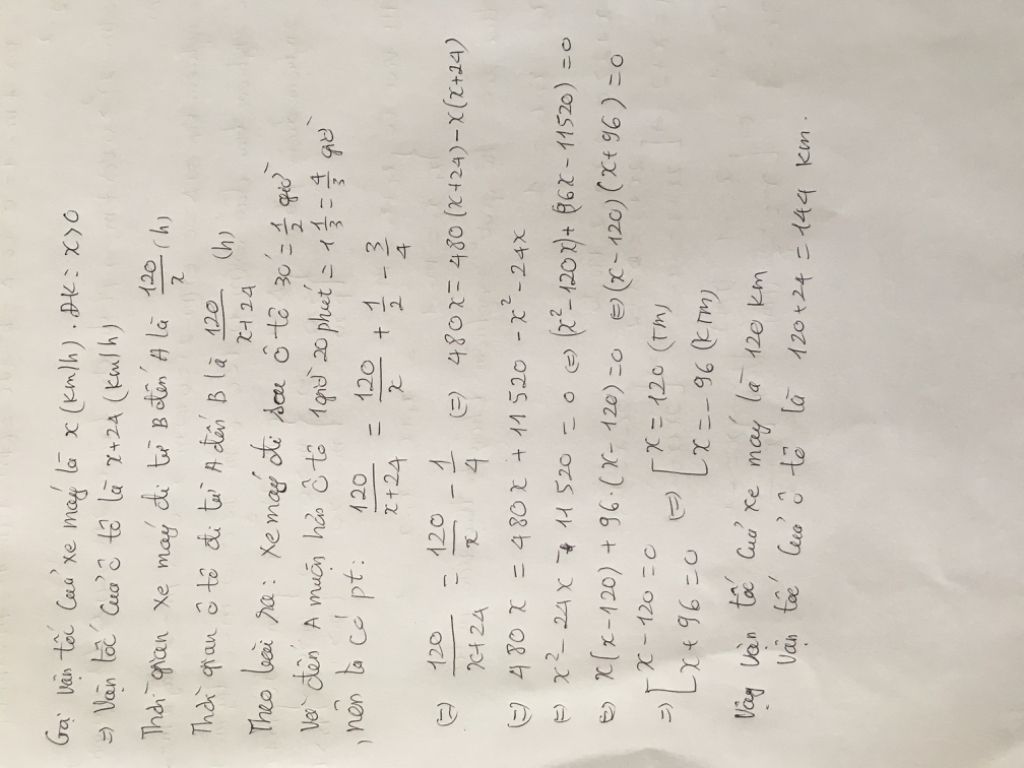 Gọi vận tốc của xe máy là x (km/h). ĐK: x>0
=> Vận tốc của ô tô là x+24 (km/h)
Thời gian xe máy đi từ B đến A là 120/x (h)
Thời gian ô tô đi từ A đến B là 120/(x+24) (h)
Theo bài ra: xe máy đi sau ô tô 30' = 1/2 giờ
và đến A muộn hơn ô tô 1 giờ 20 phút = 1 1/3 = 4/3 giờ
, nên ta có pt: 120/(x+24) = 120/x + 1/2 - 3/4
(=) 120/(x+24) = 120/x - 1/4 (=) 480x = 480(x+24) - x(x+24)
(=) 480x = 480x + 11520 - x² - 24x
(=) x² - 24x - 11520 = 0 (=) (x² - 120x) + (96x - 11520) = 0
(=) x(x-120) + 96.(x-120) = 0 (=) (x-120)(x+96) = 0
=> [ x-120=0 (=) [ x = 120 (TM)
[ x+96=0 [ x = -96 (KTM)
Vậy vận tốc của xe máy là 120 km
Vận tốc của ô tô là 120+24 = 144 km.